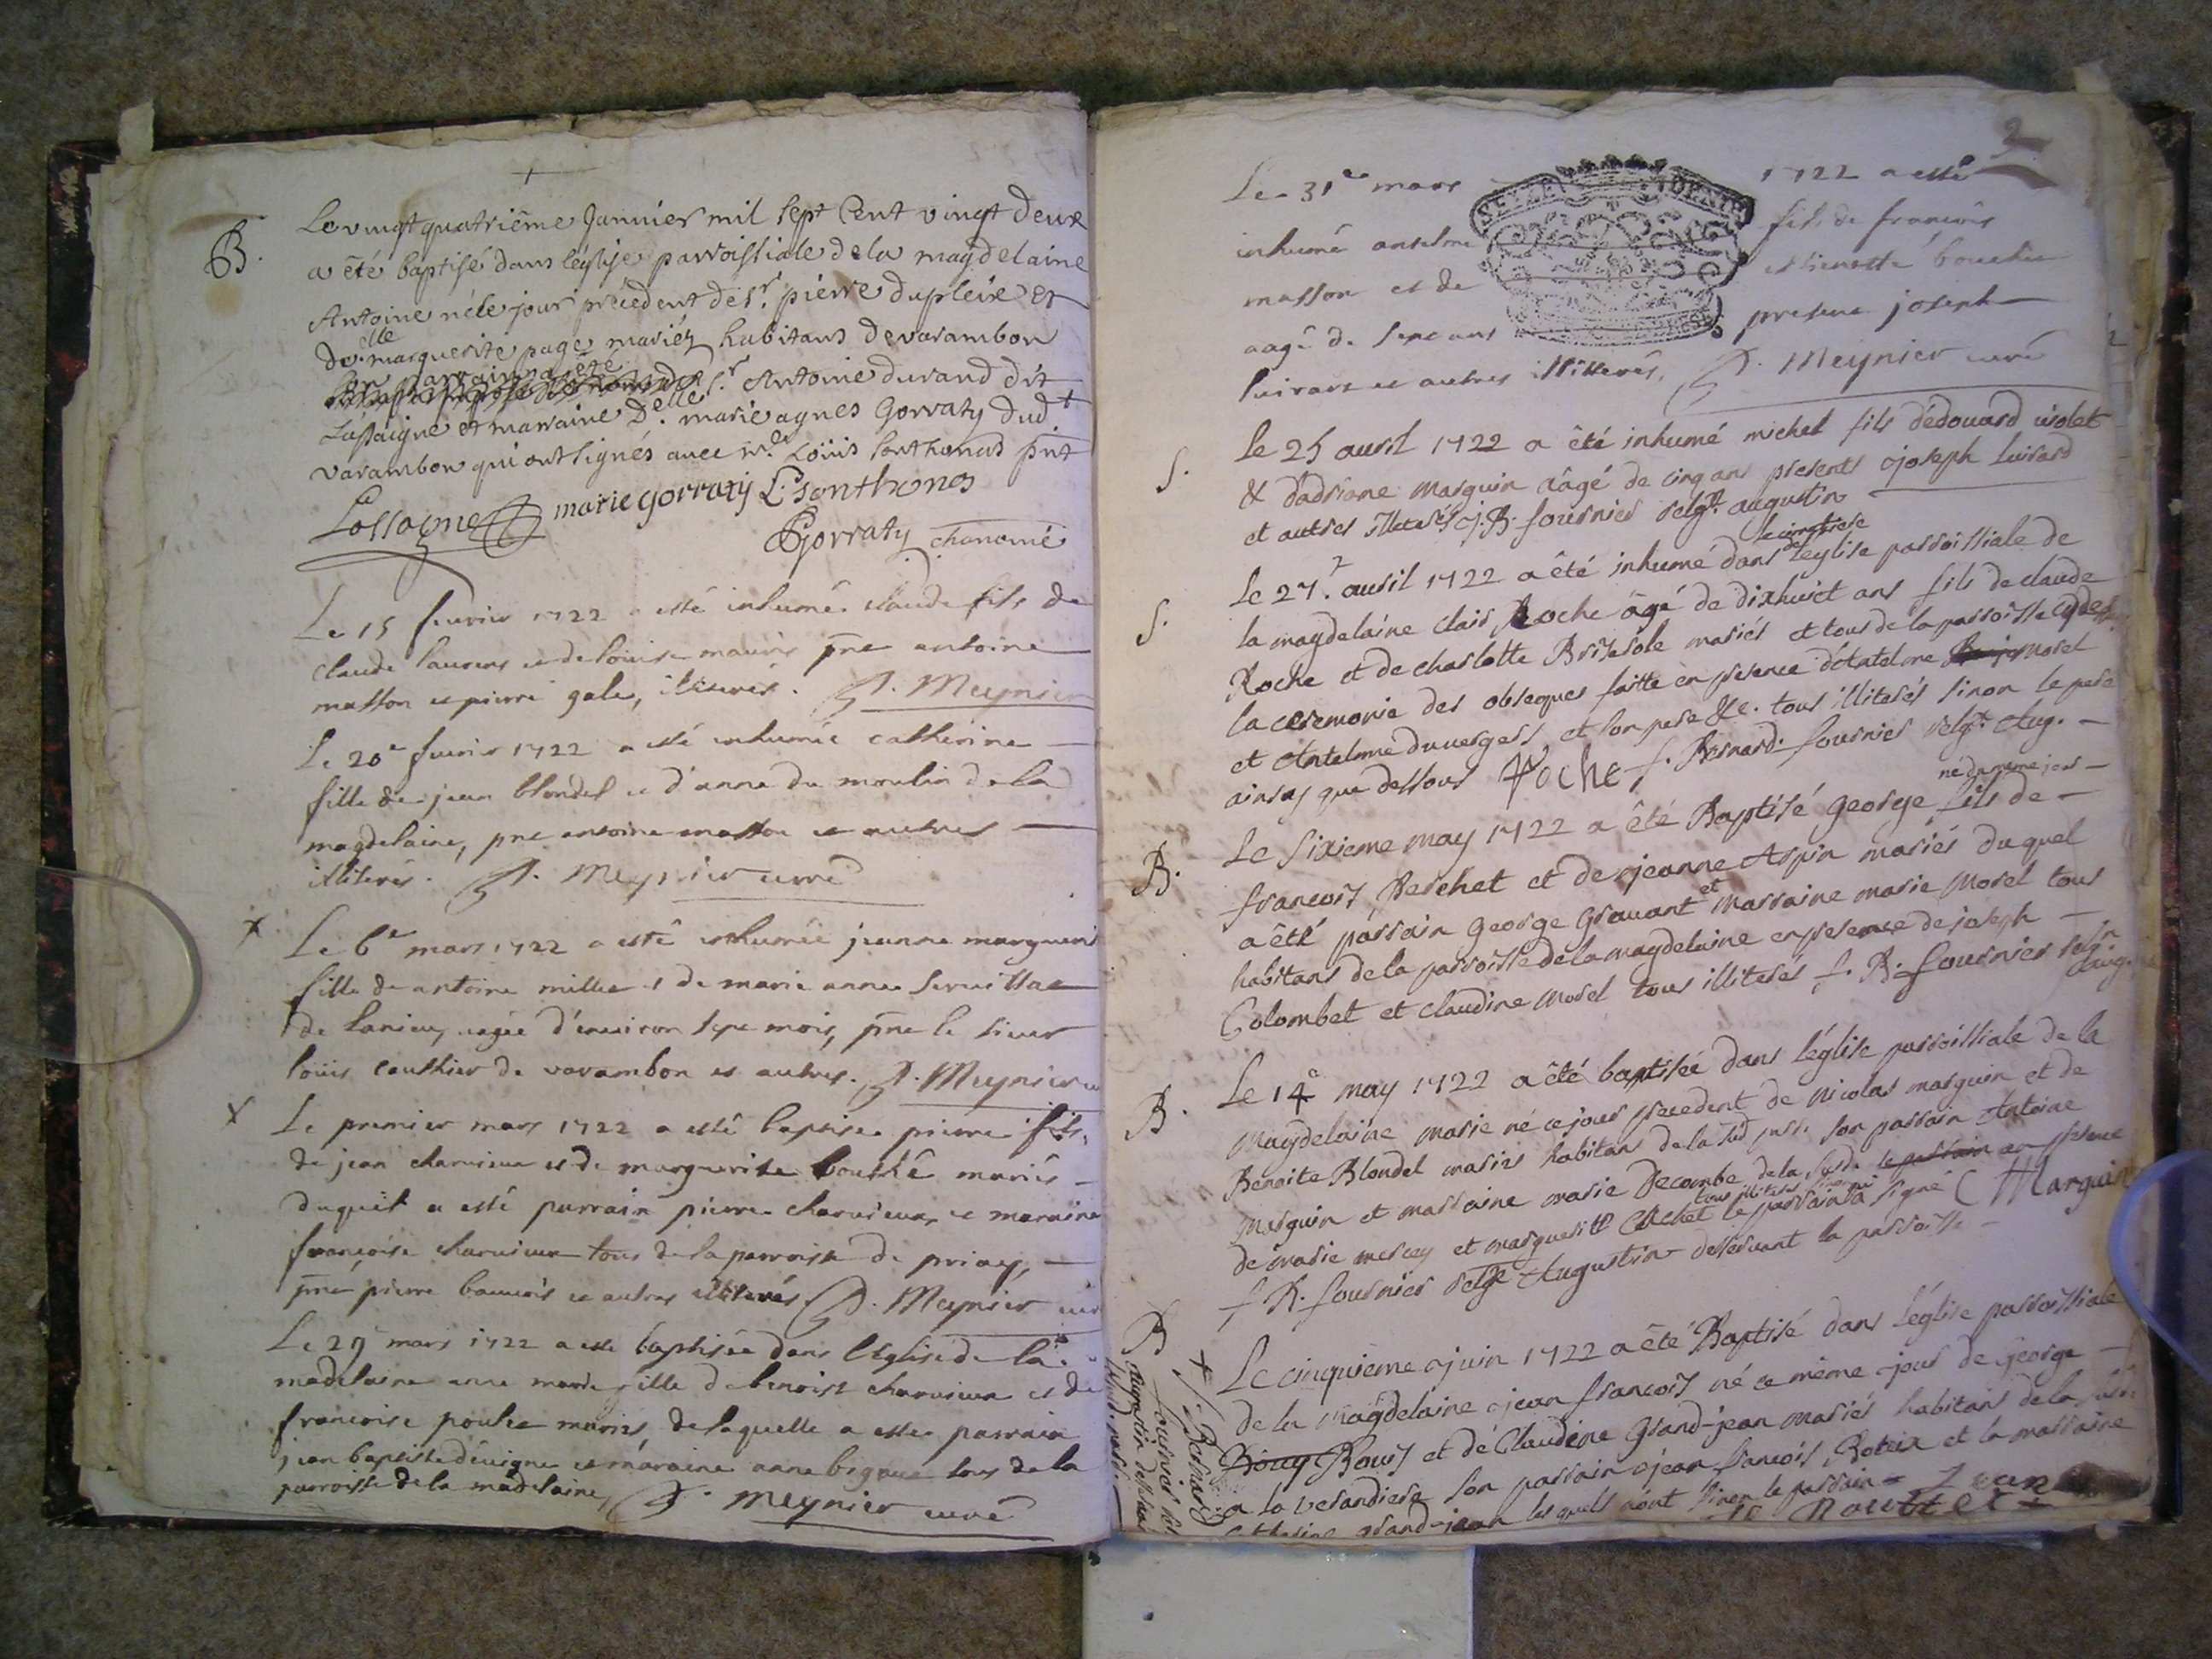 B.
Le vingt quatriême Janvier mil sept Cent vingt deux
a êté baptisé dans l'église parroissiale de la magdelaine
Antoine né le jour précedent de sr. pierre dupleix et
de delle marguerite page mariéz habitans de varambon
son parrain a été sr. Antoine durand dit
Lassaigne et marraine Delle. marie agnes Gorraty dudt
varambon qui ont signés avec Loüis Sonthonas pnt
Lassagne marie gorraty L. sonthonas
Gorraty chanoine
Le 15 feuvrier 1722 a esté inhumé claude fils de
claude laurens et de louise mauris pnt antoine
masson et pierre gale, illiterés. J. Meynier
Le 20e feuvrier 1722 a esté inhumée catherine
fille de jean blondel et d'anne du moulin de la
magdelaine, pnt antoine masson et autres
illiterés. J. Meynier curé
x
Le 6e mars 1722 a esté inhumée jeanne marguerite
fille de antoine millet et de marie anne
de lanieu, aagée d'environ sept mois, pnt le sieur
loüis gauthier de varambon et autres. J. Meynier
x
Le premier mars 1722 a esté baptisé pierre fils
de jean charvieux et de marguerite bouché mariés
duquel a esté parrain pierre charvieux, et maraine
françoise charvieux tous de la parroisse de priay,
pnt pierre et autres illiterés J. Meynier curé
Le 29e mars 1722 a esté baptisée dans l'Eglise de la
madelaine anne marie fille de benoist charvieux et de
francoise mariés, de laquelle a esté parrain
jean baptiste et maraine anne tous de la
parroisse de la madelaine, J. meynier curé
2
Le 31e mars 1722 a esté
inhumé anselme fils de françois
masson et de bouchu
aagé de sept ans presens joseph
luirard et autres illiterés, J. Meynier curé
S.
le 25 avril 1722 a êté inhumé michel fils d'edouard violet
& d'adriane marguin âagé de cinq ans presents joseph luirard
et autres illiterés f. B. fournier relgx augustin
S.
Le 27. avril 1722 a êté inhumé dans le cimetiere de l'eglise parroissiale de
la magdelaine Clair Roche âgé de dixhuict ans fils de claude
Roche et de charlotte mariés et tous de la parroisse
la ceremonie des obseques faitte en presence d'Antelme morel
et Antelme duverger et son pere &c. tous illiterés sinon le pere
ainsy que dessous roche f. Bernard fournier relgx Aug.
B.
Le sixieme may 1722 a êté Baptisé George né du meme jour fils de
francois Berchet et de jeanne Arpin mariés duquel
a êté parrain George Gravant et marraine marie morel tous
habitans de la parroisse de la magdelaine en presence de joseph
Colombet et claudine morel tous illiterés f. B. fournier relgx aug.
B.
Le 14e may 1722 a êté baptisée dans l'église parroissiale de la
magdelaine marie né ce jour precedent de Nicolas marguin et de
Benoite Blondel mariés habitans de la susd. parr. son parrain Antoine
marguin et marraine marie Decombe de la susde le parrain en presence
de marie mercey et marguerite Cachet tous illiterés le parrain a signé C Marguin
f. B. fournier relgx Augustin desservant la parroisse
B
Le cinquieme juin 1722 a êté Baptisé dans l'église parroissiale
de la magdelaine jean francois né ce même jour de George
Bouis et de Claudine Grand-jean mariés habitans de la susd.
a la verandiere son parrain jean francois et la marraine
Catherine grand-jean les quels n'ont sinon le parrain Jean
f. Bernard
fournier
augustin